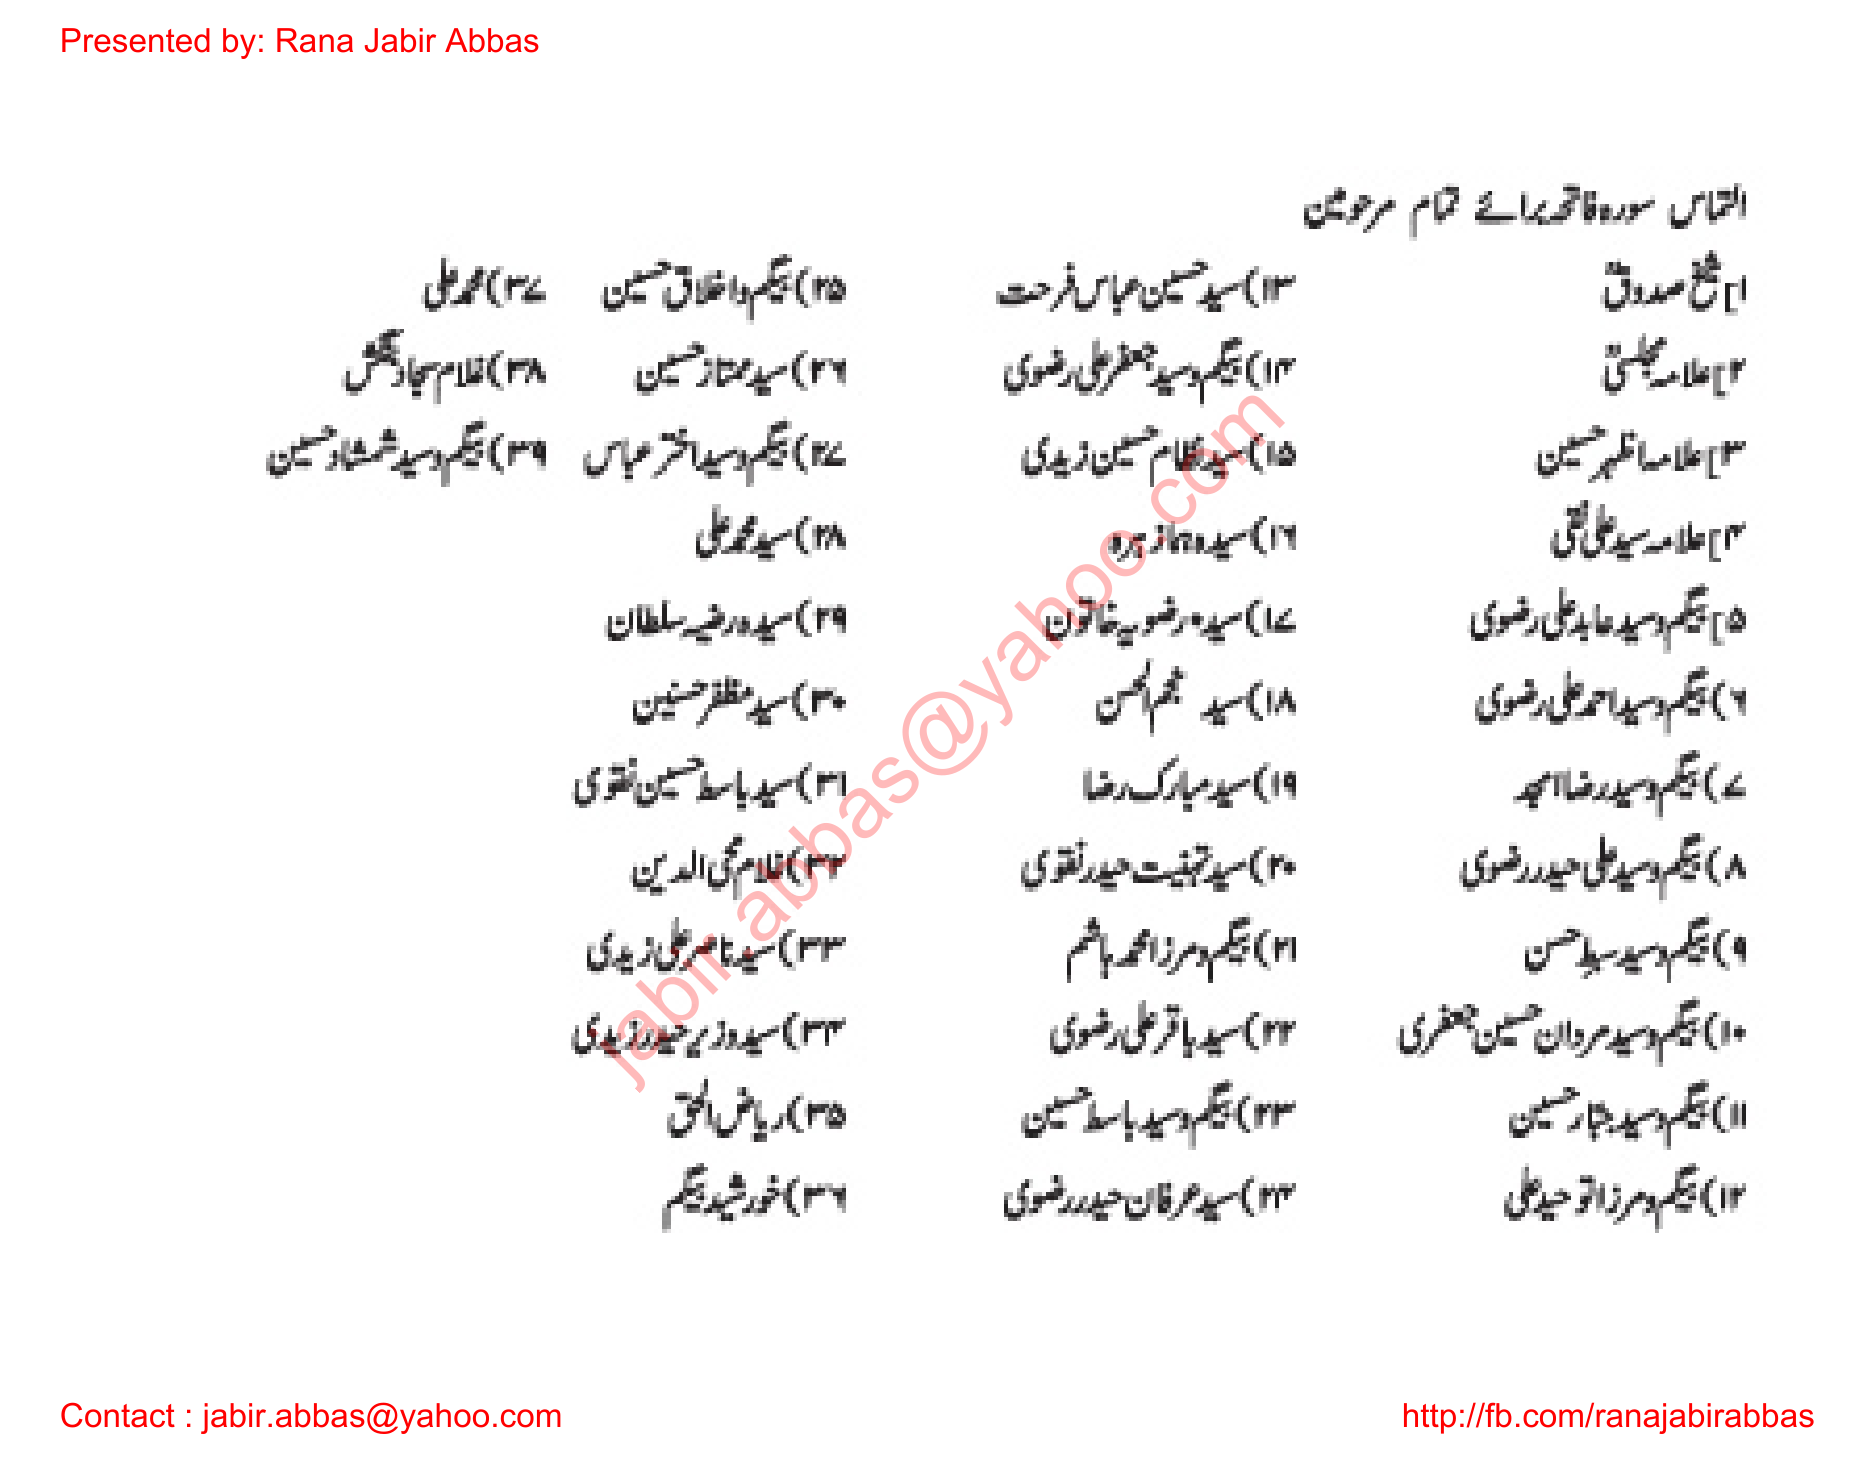 Presented by: Rana Jabir Abbas
التماس سورہ فاتحہ برائے تمام مرحومین
۱] شیخ صدوقؒ
۲] علامہ مجلسیؒ
۳] علامہ اظہر حسین
۴] علامہ سید علی نقی
۵] بیگم و سید عابد علی رضوی
۶) بیگم و سید احمد علی رضوی
۷) بیگم و سید رضا امجد
۸) بیگم و سید علی حیدر رضوی
۹) بیگم و سید سبط حسن
۱۰) بیگم و سید مردان حسین جعفری
۱۱) بیگم و سید بنیاد حسین
۱۲) بیگم و مرزا توحید علی
۱۳) سید حسین عباس فرحت
۱۴) بیگم و سید جعفر علی رضوی
۱۵) سید نظام حسین زیدی
۱۶) سیدہ مازہرہ
۱۷) سیدہ رضویہ خاتون
۱۸) سید نجم الحسن
۱۹) سید مبارک رضا
۲۰) سید تہنیت حیدر نقوی
۲۱) بیگم و مرزا محمد ہاشم
۲۲) سید باقر علی رضوی
۲۳) بیگم و سید باسط حسین
۲۴) سید عرفان حیدر رضوی
۲۵) بیگم و اخلاق حسین
۲۶) سید ممتاز حسین
۲۷) بیگم و سید اختر عباس
۲۸) سید محمد علی
۲۹) سیدہ رضیہ سلطان
۳۰) سید مظفر حسنین
۳۱) سید باسط حسین نقوی
۳۲) غلام محی الدین
۳۳) سید ناصر علی زیدی
۳۴) سید وزیر حیدر زیدی
۳۵) ریاض الحق
۳۶) خورشید بیگم
۳۷) محمد علی
۳۸) غلام سجاد بخش
۳۹) بیگم و سید شمشاد حسین
jabir.abbas@yahoo.com
Contact : jabir.abbas@yahoo.com
http://fb.com/ranajabirabbas